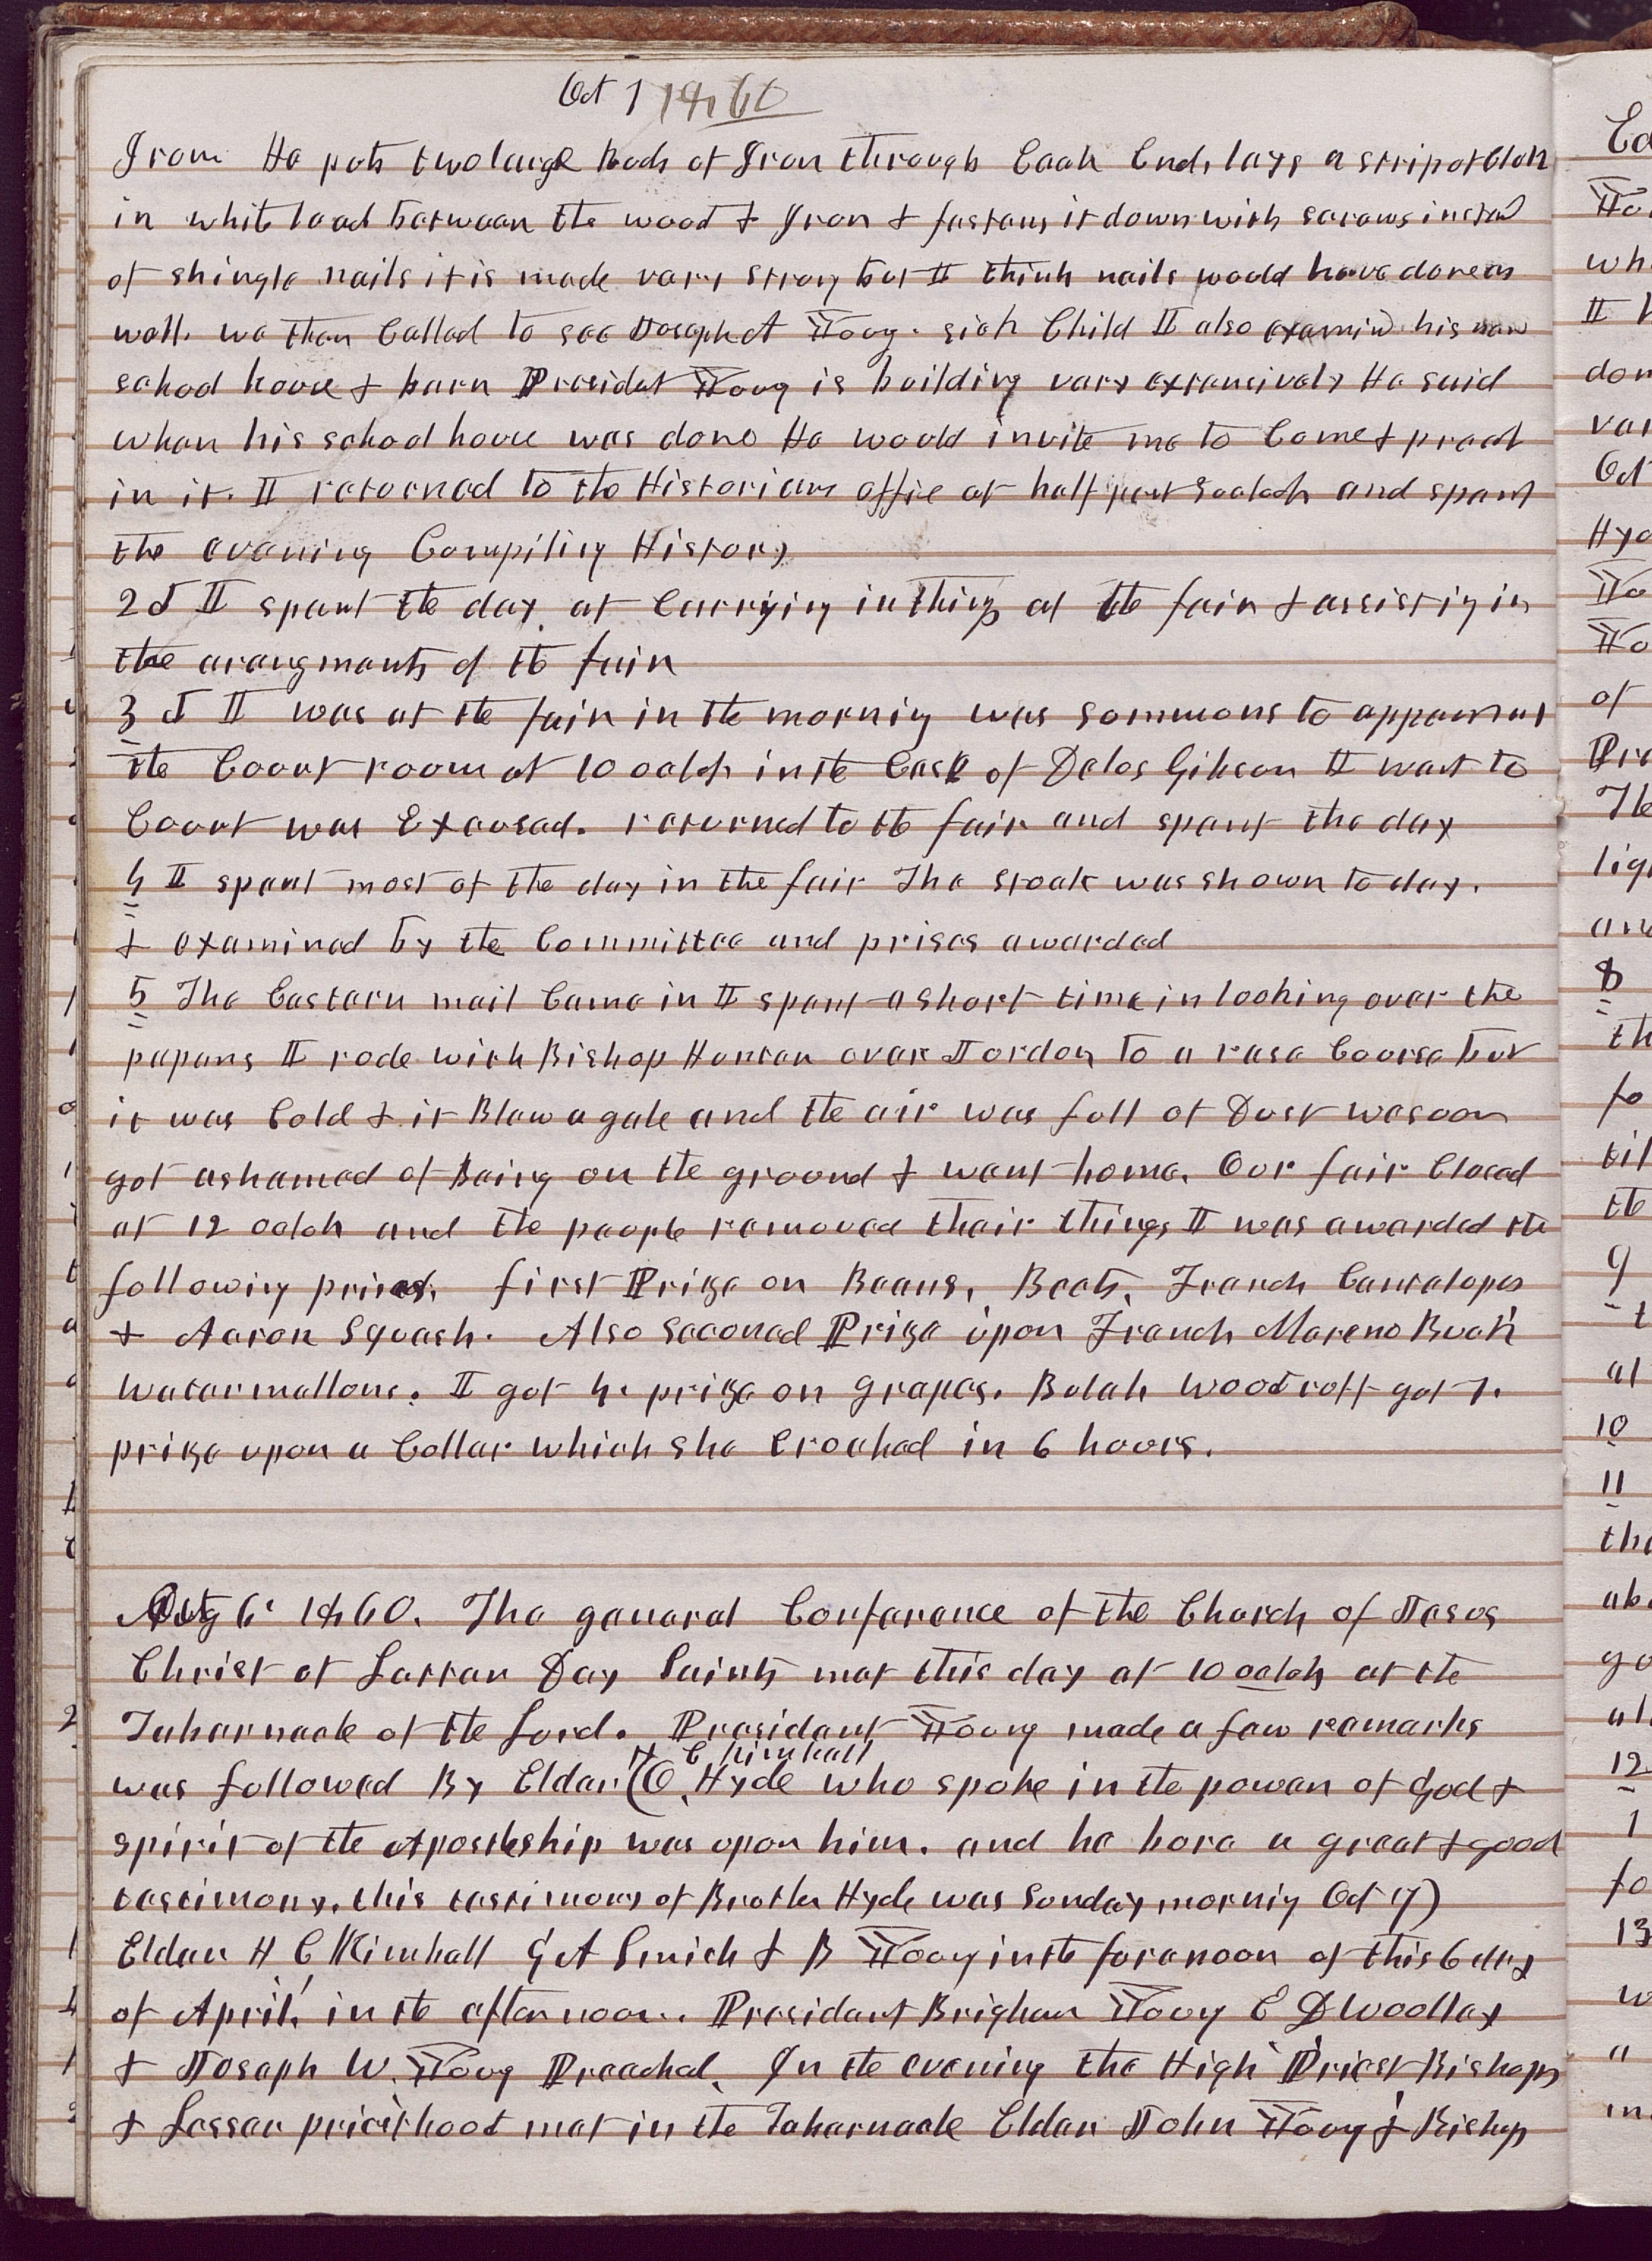 Oct 1 1860
Iron He puts two large Rods of Iron through Each End, lays a strip of Cloth
in white lead between the wood & Iron & fastens it down with screws instead
of shingle nails it is made very strong but I think nails would have done as
well. we then Called to see Joseph A Young. sick Child I also examind his new
school house & barn President Young is building very extensively He said
when his school house was done He would invite me to Come & preach
in it. I returned to the Historians office at half past 5 oclock and spent
the evening Compiling History
2d I spent the day at Carrying in things at the fair & assisting in
the arangments of the fair
3d I was at the fair in the morning was summons to appear at
the Court room at 10 oclok in the Case of Delos Gibson I went to
Court was Excused. returned to the fair and spent the day
4 I spent most of the day in the fair The stock was shown to day.
& examined by the Committee and prises awarded
5 The Eastern mail Came in I spent a short time in looking over the
papers I rode with Bishop Hunter over Jordon to a rase Course but
it was Cold & it Blew a gale and the air was full of Dust we soon
got ashamed of Being on the ground & went home. Our fair Closed
at 12 oclok and the people removed their things I was awarded the
following prizes. first Prize on Beans, Beets, French Cantalopes
& Acron Squash. Also Seconed Prize upon French Moreno Buck
Watermellons. I got 4. prize on grapes. Bulah Woodruff got 1.
prize upon a Collar which she Croched in 6 hours.
Oct 6. 1860. The general Conference of the Church of Jesus
Christ of Latter Day Saints met this day at 10 oclok at the
Tabernacle of the Lord. President Young made a few remarks
H C Kimball
was followed By Elder (O. Hyde who spoke in the power of God &
spirit of the Apostleship was upon him. and he bore a great & good
testimony. this testimony of Brother Hyde was Sunday morning Oct 7)
Elder H C Kimball G A Smith & B Young in the forenoon of this 6 day
of April. in the afternoon. President Brigham Young E D Woolley
& Joseph W. Young Preached. In the evening the High Priest Bishops
& Lesser priesthood met in the Tabernacle Elder John Young & Bishop